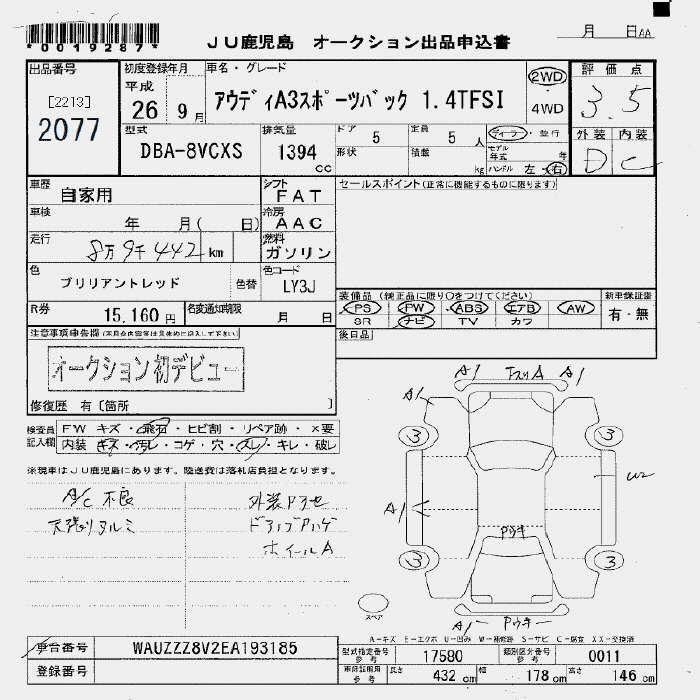 *00192877*
JU鹿児島 オークション出品申込書
月 日AA
出品番号
[2213]
2077
初度登録年月
平成
26 9月
車名・グレード
アウディA3スポーツバック 1.4TFSI
2WD
4WD
評価点
3.5
外装 内装
D C
型式
DBA-8VCXS
排気量
1394
cc
ドア 5
形状
定員 5 人
積載 kg
ディーラ・並行
モデル年式 年
ハンドル 左・右
車歴
自家用
シフト
FAT
セールスポイント(正常に機能するものに限ります)
車検
年 月( 日)
冷房
AAC
走行
8万9千442 km
燃料
ガソリン
色
ブリリアントレッド
色替
色コード
LY3J
R券
15,160 円
名変通知期限
月 日
装備品(純正品に限り○をつけてください)
PS PW ABS エアB AW
SR ナビ TV カワ
新車保証書
有・無
後日品
注意事項申告欄
オークション初デビュー
修復歴 有〔箇所 〕
検査員記入欄
FW キズ・飛石・ヒビ割・リペア跡・×要
内装 キズ・汚レ・コゲ・穴・スレ・キレ・破レ
※現車はJU鹿児島にあります。陸送費は落札店負担となります。
A/C不良
天張りタルミ
外装P
ホイールA
A1 A A1
A1
3 3
A1
W2
Pウキ
3 3
スペア
A1 Pウキ
A-キズ E-エクボ U-凹み W-補修跡 S-サビ C-腐食 XX-交換済
車台番号
WAUZZZ8V2EA193185
登録番号
型式指定番号
参考
17580
類別区分番号
参考
0011
車検証記載
参考
長さ
432 cm
幅
178 cm
高さ
146 cm